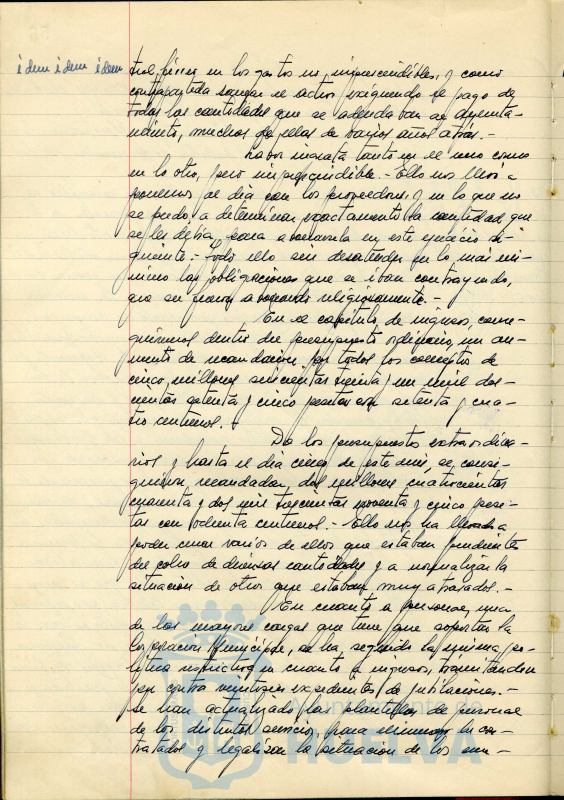 idem idem idem
en los gastos no imprescindibles, y como
contrapartida el activo exigiendo el pago de
todas las cantidades que se adeudaban al Ayunta-
miento, muchas de ellas de varios años atrás.-
Labor ingrata tanto en el uno como
en lo otro, pero imprescindible.- Ello nos llevó a
ponernos al día con los proveedores, y en lo que no
se pudo, a determinar exactamente la cantidad que
se les debía, para abonarla en este ejercicio si-
guiente.- Todo ello sin desatender en lo más mí-
nimo las obligaciones que se iban contrayendo,
que se fueron abonando religiosamente.-
En el capítulo de ingresos, conse-
guimos dentro del presupuesto ordinario, un au-
mento de recaudación por todos los conceptos de
cinco millones seiscientas treinta y un mil dos-
cientas setenta y cinco pesetas con setenta y cua-
tro céntimos.-
De los presupuestos extraordina-
rios y hasta el día cinco de este mes, se consi-
guieron recaudar, dos millones cuatrocientas
cuarenta y dos mil trescientas noventa y cinco pese-
tas con ochenta céntimos.- Ello nos ha llevado a
poder cerrar varios de ellos que estaban pendientes
del cobro de diversas cantidades y a normalizar la
situación de otros que estaban muy atrasados.-
En cuanto a personal, una
de las mayores cargas que tiene que soportar la
Corporación Municipal, se ha seguido la misma po-
lítica restrictiva en cuanto a ingresos, tramitándose
por contra expedientes de jubilaciones.-
Se han actualizado las plantillas de personal
de los distintos servicios, para eliminar los con-
tratados y legalizar la situación de los
Ayuntamiento de
HUELVA